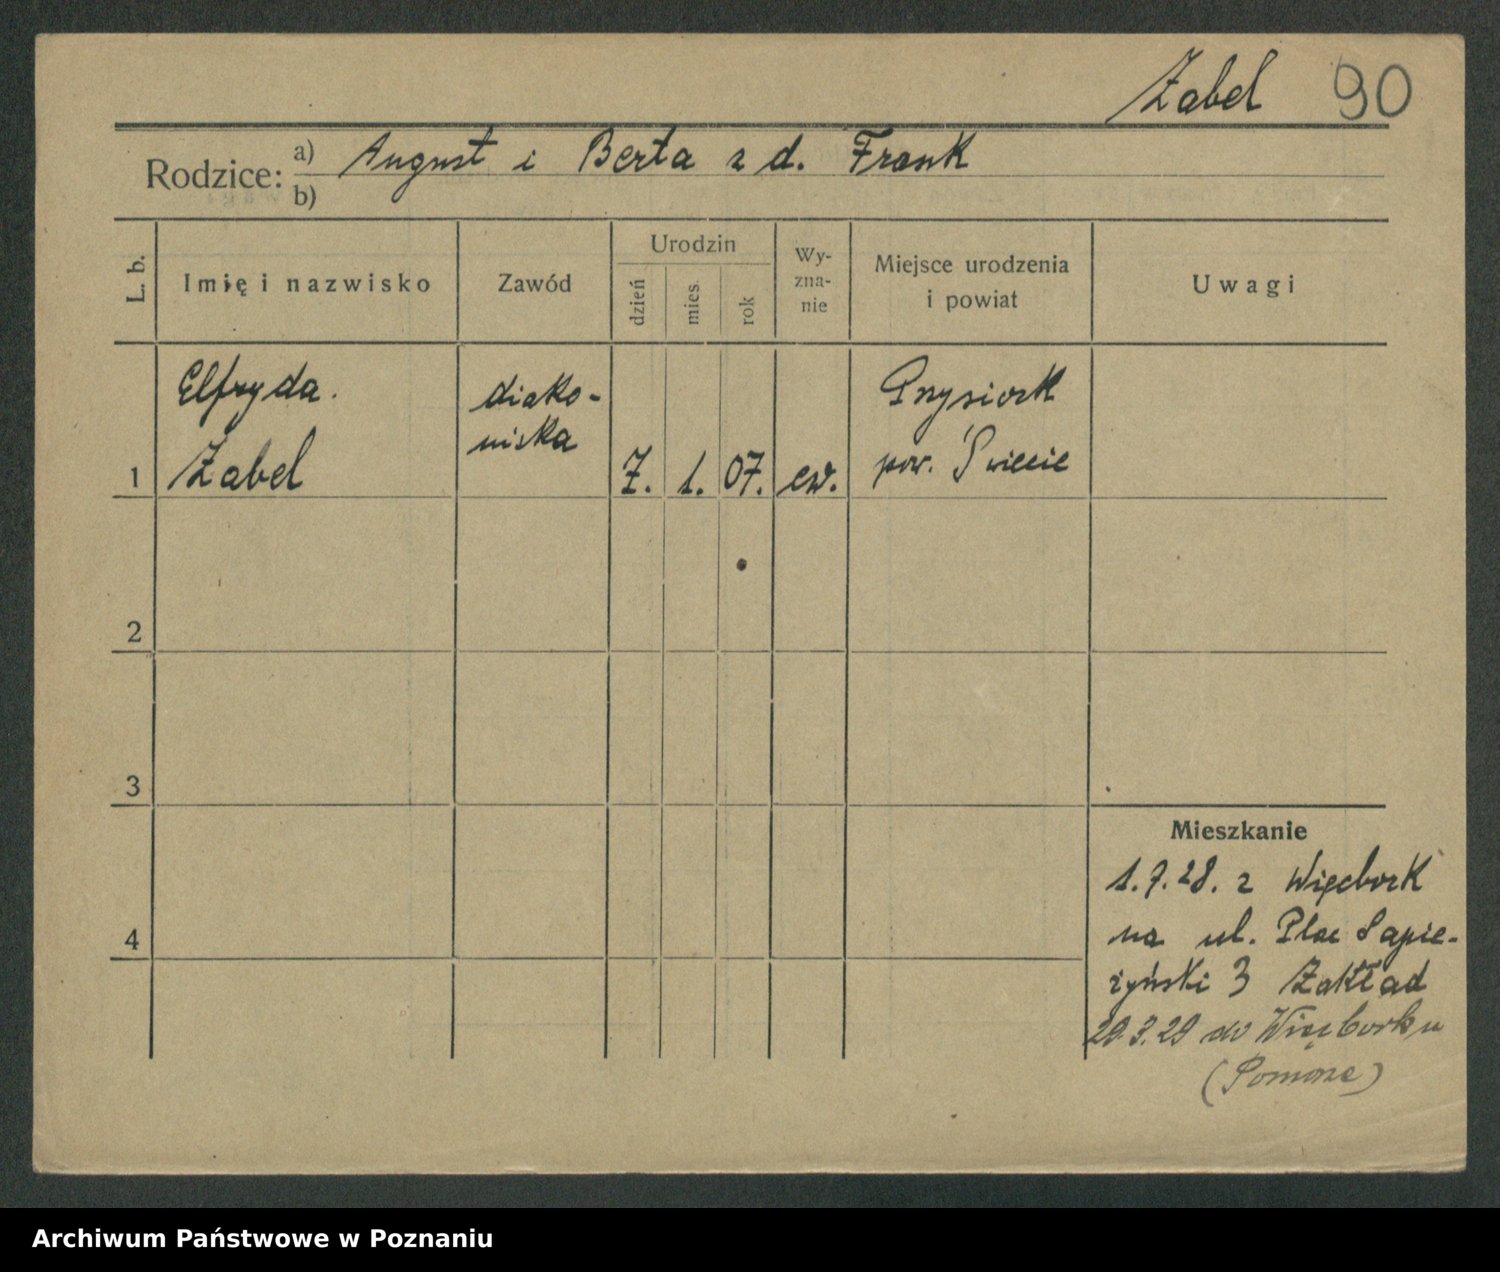 Zabel 90
Rodzice: a) August i Berta z d. Frank
b)
L. b. Imię i nazwisko Zawód Urodzin dzień mies. rok Wy-zna-nie Miejsce urodzenia i powiat Uwagi
Elfryda. diako- Przysiork
1 Zabel niska 7. 1. 07. ew. pow. Świecie
2
3
Mieszkanie
1.7.28. z Więcbork
na ul. Plac Sapie-
4
żyński 3 Zakład
29.3.29 do Więcborku
(Pomorze)
Archiwum Państwowe w Poznaniu